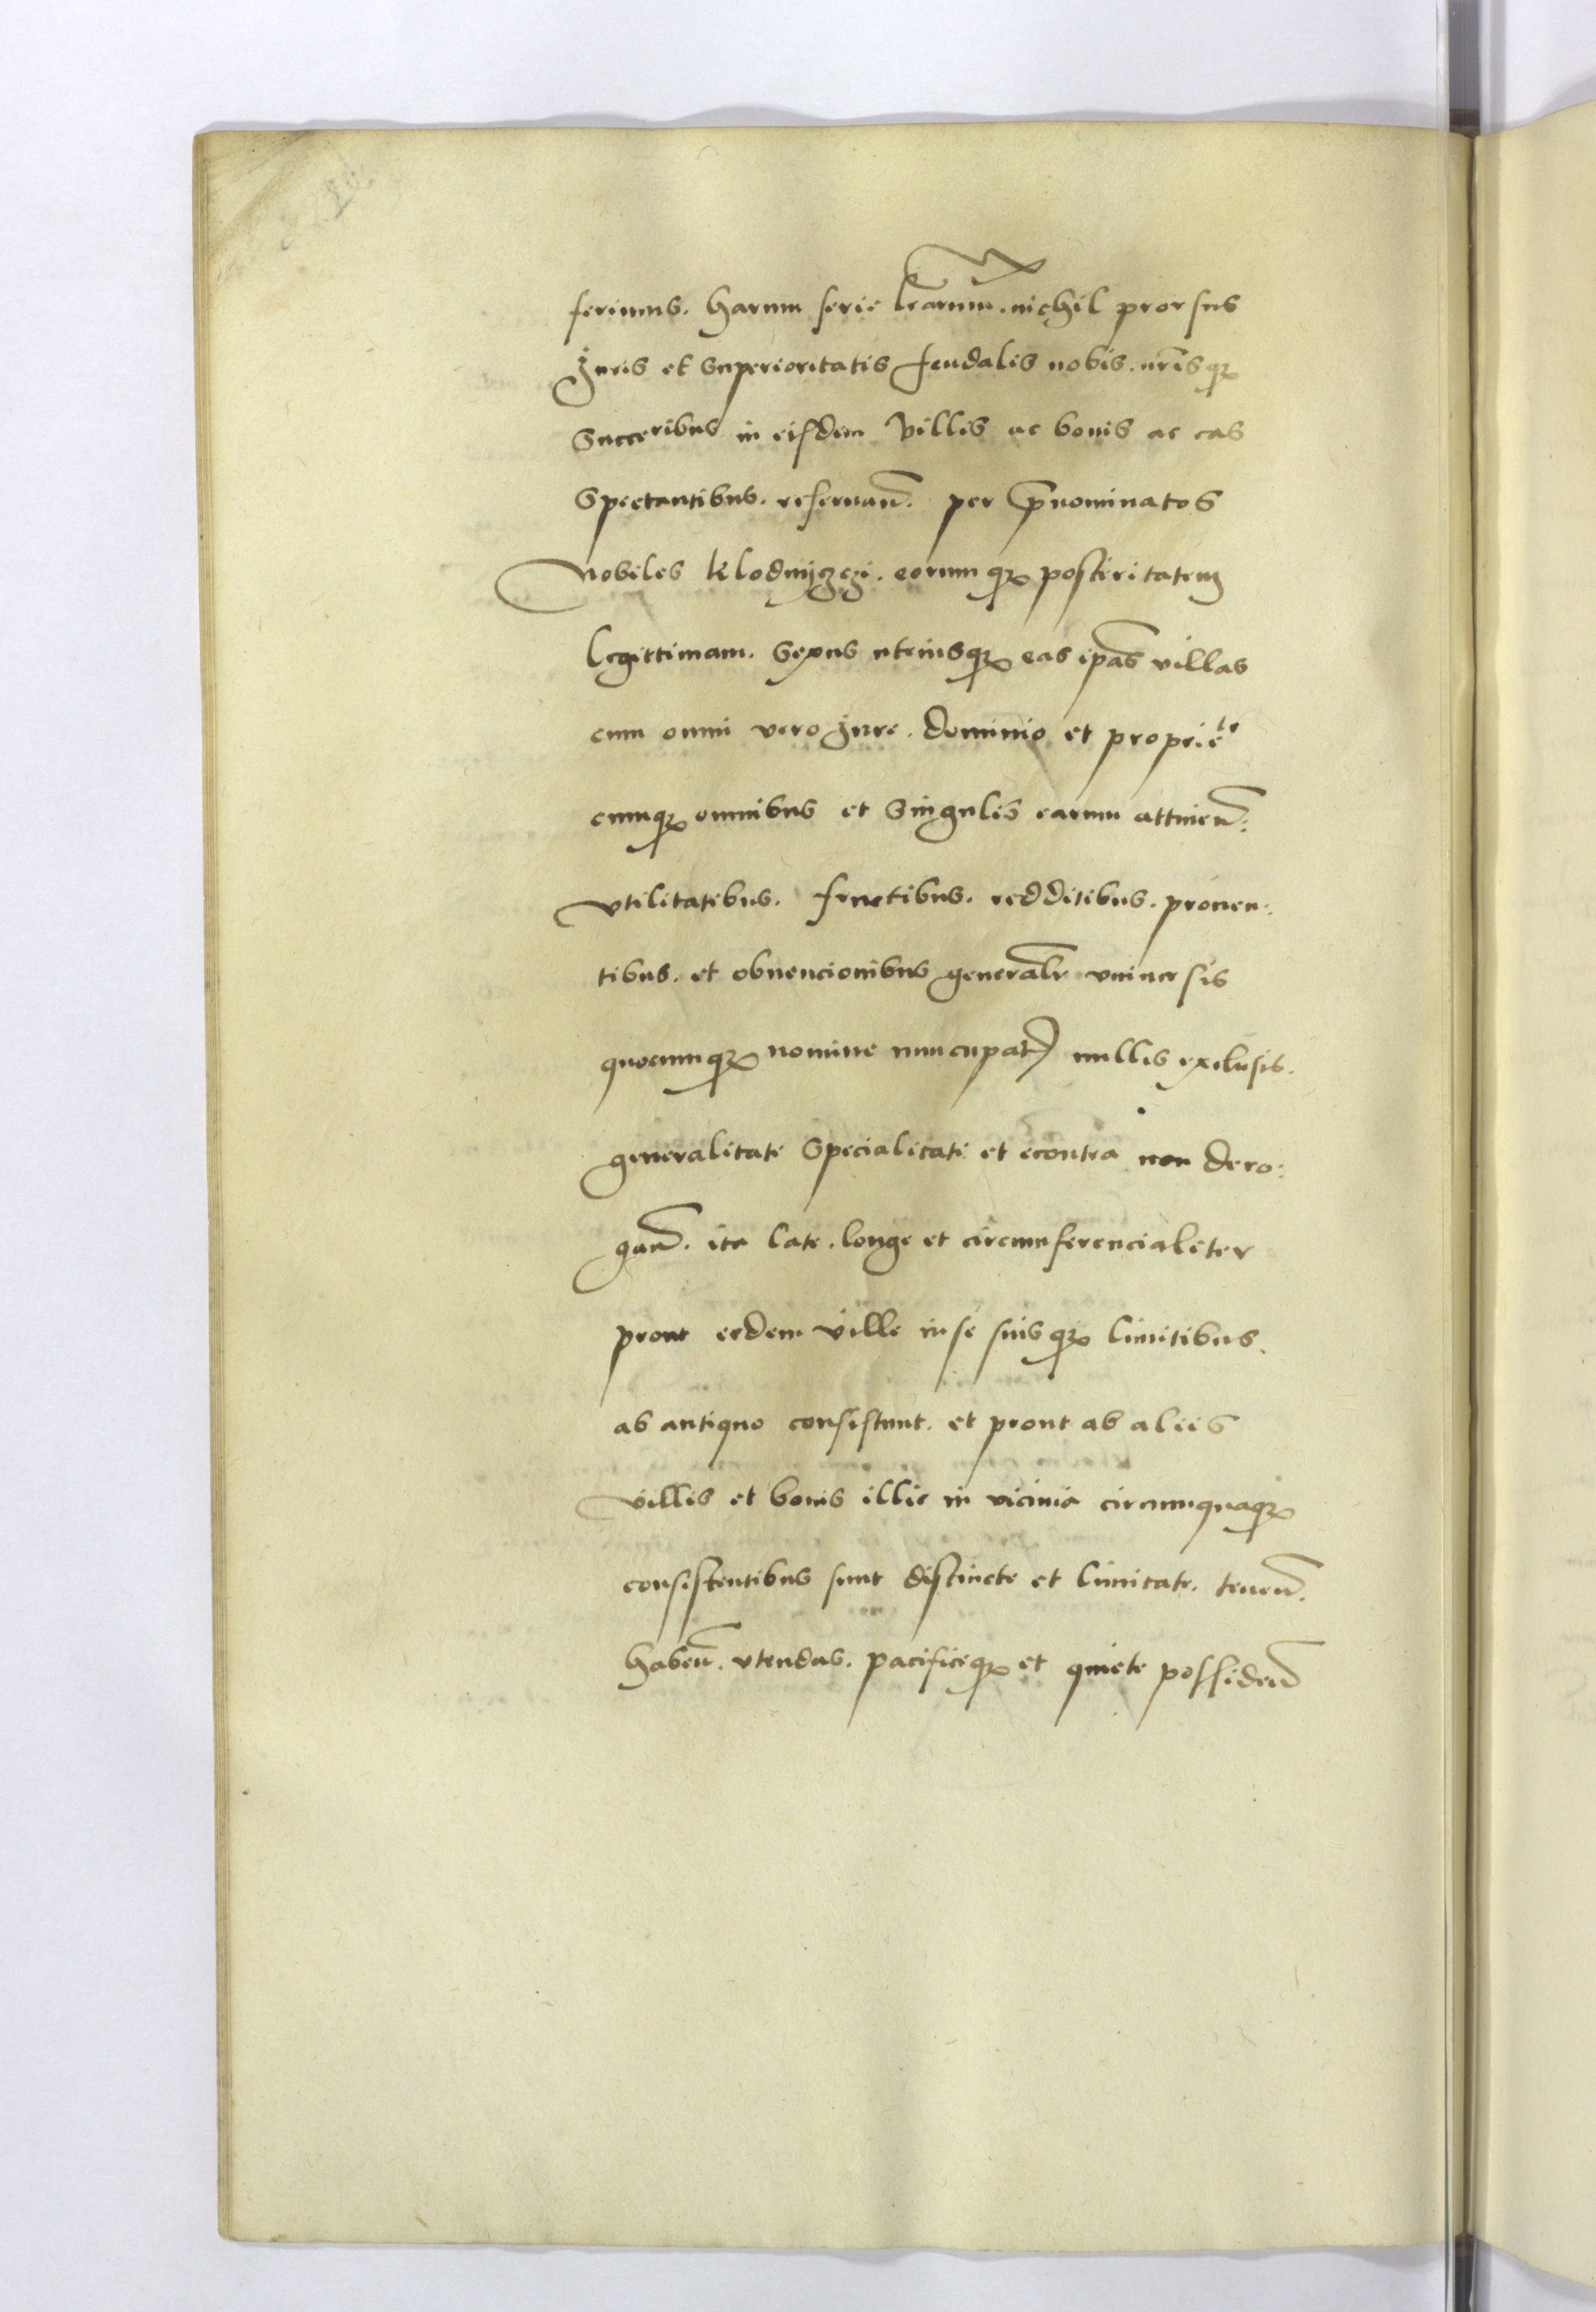 ferimus. harum serie lrarum. nichil prorsus
Juris et Superioritatis feudalis nobis. nrisq3
Succeribus in eisdem Villis ac bonis ac eas
Spectantibus. reseruan. per pnominatos
Nobiles klodnyczczi. eorumq3 posteritatem
legittimam. Sexus utriusq3 eas ipas villas
cum omni vero Jure. dominio et proprie te
cumq3 omnibus et Singulis earum attinen:
vtilitatibus. fructibus. redditibus. prouen:
tibus. et obuencionibus generalr vniuersis
quocumq3 nomine nuncupat nullis exclusis.
generalitate Specialitati et econtra non dero:
gan. ita late. longe et circumferencialiter
prout eedem ville in se suisq3 limitibus.
ab antiquo consistunt. et prout ab aliis
villis et bonis illic in vicinia circumquaq3
consistentibus sunt distincte et limitate. tenen.
haben. vtendas. pacificeq3 et quiete possiden